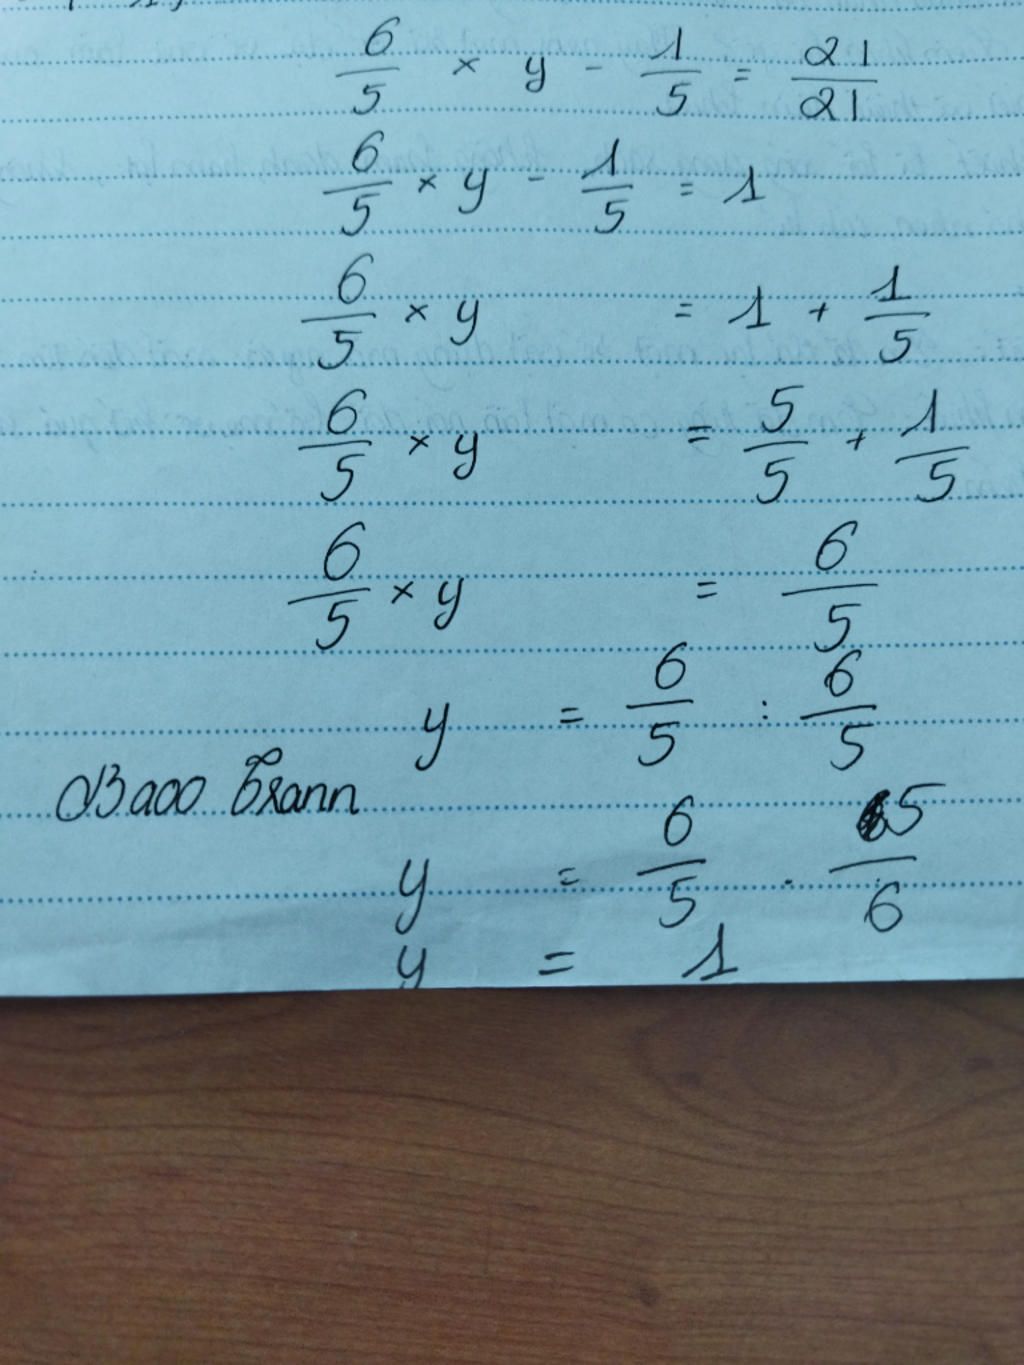 6/5 × y - 1/5 = 21/21
6/5 × y - 1/5 = 1
6/5 × y = 1 + 1/5
6/5 × y = 5/5 + 1/5
6/5 × y = 6/5
y = 6/5 : 6/5
Baoo Trann
y = 6/5 . 5/6
y = 1